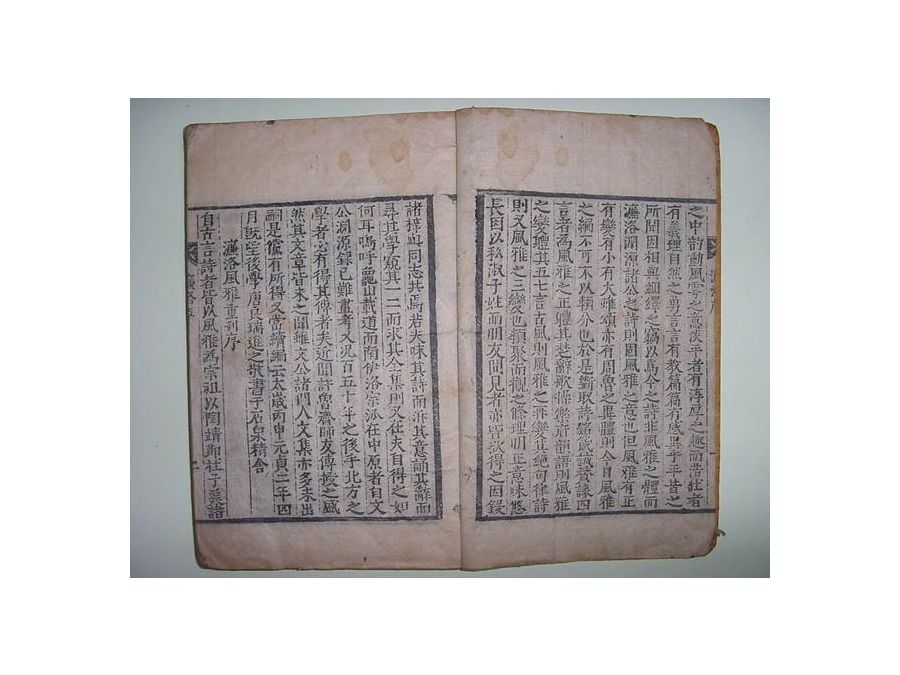 之中韵動風雲之意淡平者有淳厚之趣而浩壯者
有義理自然之勇言言有教篇篇有感異乎平昔之
所聞因相與紬繹之編以爲今之詩非風雅之體而
濂洛淵源諸公之詩則固風雅之意也但風雅有正
有變有小有大雖頌亦有周魯之異體則今日風雅
之編不可不以類分也於是斷取詩銘箴誡贊誄四
言者爲風雅之正體其楚辭歌操樂府韻語則風雅
之變體其五七言古風則風雅之再變其絶句律詩
則又風雅之三變也類聚而觀之條理明正意味悠
長因以私淑子姓而朋友間見者亦皆欲得之因録
諸梓與同志共焉若夫味其詩而泝其意誦其辭而
尋其學窺其一二而求其全集則又在夫自得之如
何耳嗚呼龜山載道而南伊洛宗派在中原者自文
公淵源録已難盡考又况百五十年之後乎北方之
學者必有得其傳者矣近聞許魯齋師友傳授之盛
然其文章皆未之聞雖文公諸門人文集亦多未出
嗣是儻有所得又當續編云太歳丙申元貞二年四
月旣望後學唐良瑞進之敬書于石泉精舍
濂洛風雅重刊序
自古言詩者皆以風雅爲宗祖以陶靖節杜子美諸